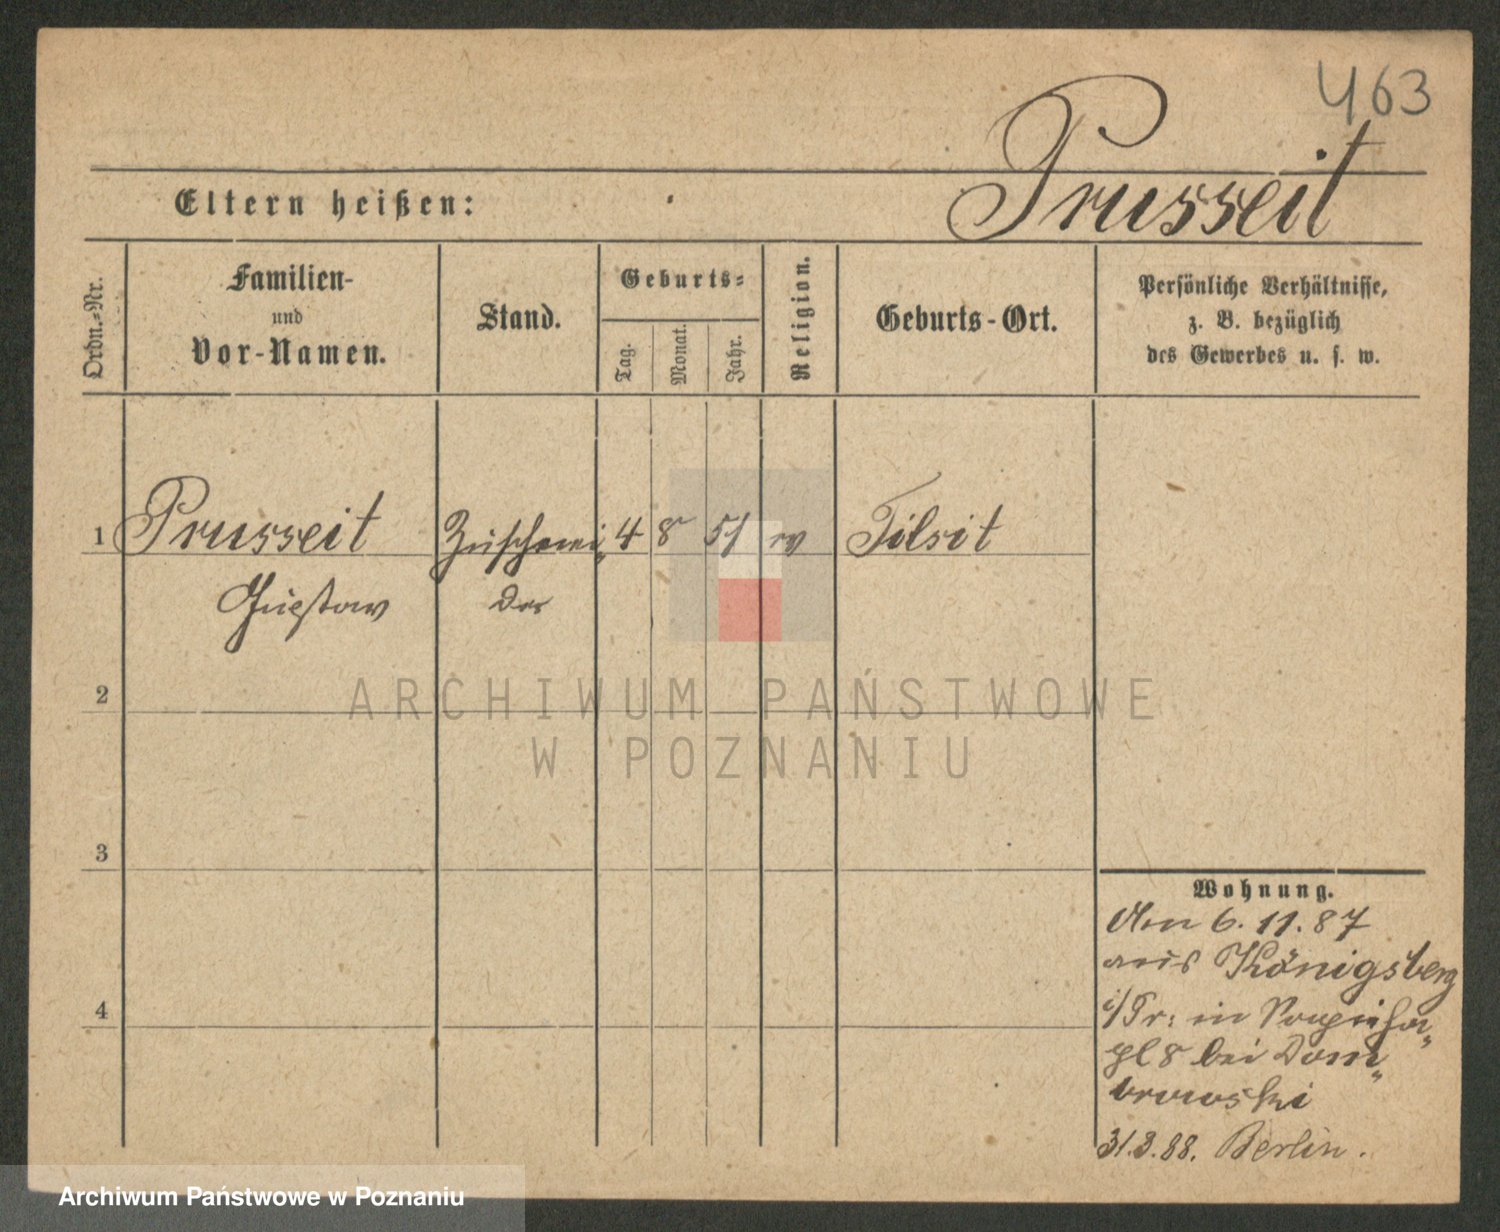 463
Prusseit
Eltern heißen:
Ordn.-Nr.
Familien-
und
Vor-Namen.
Stand.
Geburts-
Tag.
Monat.
Jahr.
Religion.
Geburts-Ort.
Persönliche Verhältnisse,
z. B. bezüglich
des Gewerbes u. s. w.
1 Prusseit Zuschnei„ 4 8 51 ev Tilsit
Gustav der
2
ARCHIWUM PAŃSTWOWE
W POZNANIU
3
Wohnung.
6. 11. 87
aus Königsberg
i/Pr: in
pl 8 bei Dom„
browski
31.3.88. Berlin.
4
Archiwum Państwowe w Poznaniu